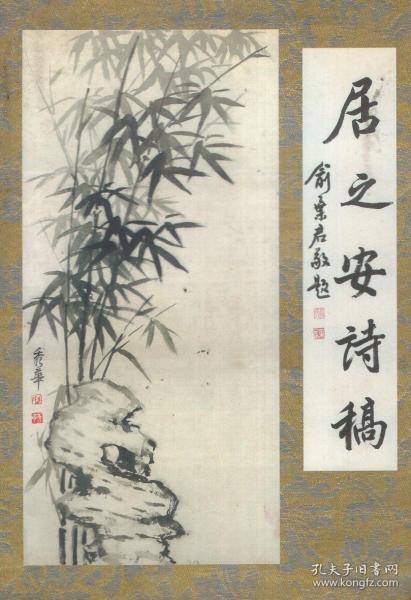 居之安詩稿
俞棄君敬題
秀華
孔夫子旧书网
www.kongfz.com